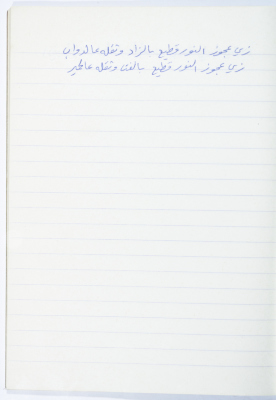 زي عجوز النور قطيع بالزاد وتقله عالدواب
زي عجوز النور قطيع بالفت وتقله عالحمير